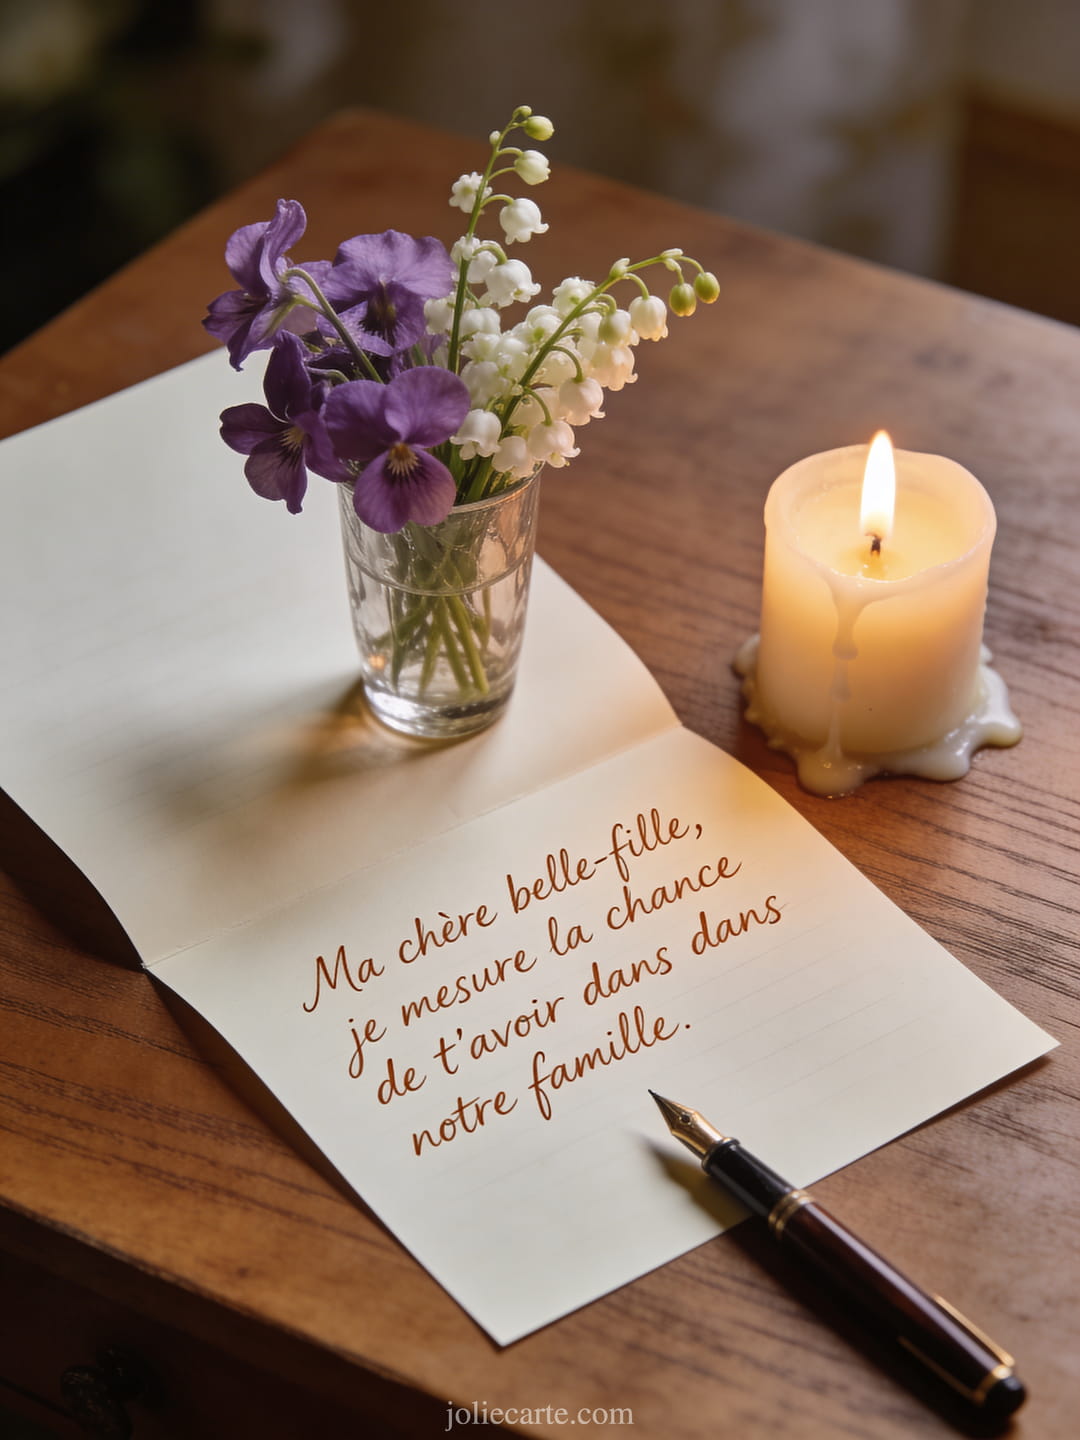 Ma chère belle-fille,
je mesure la chance
de t'avoir dans dans
notre famille.
joliecarte.com